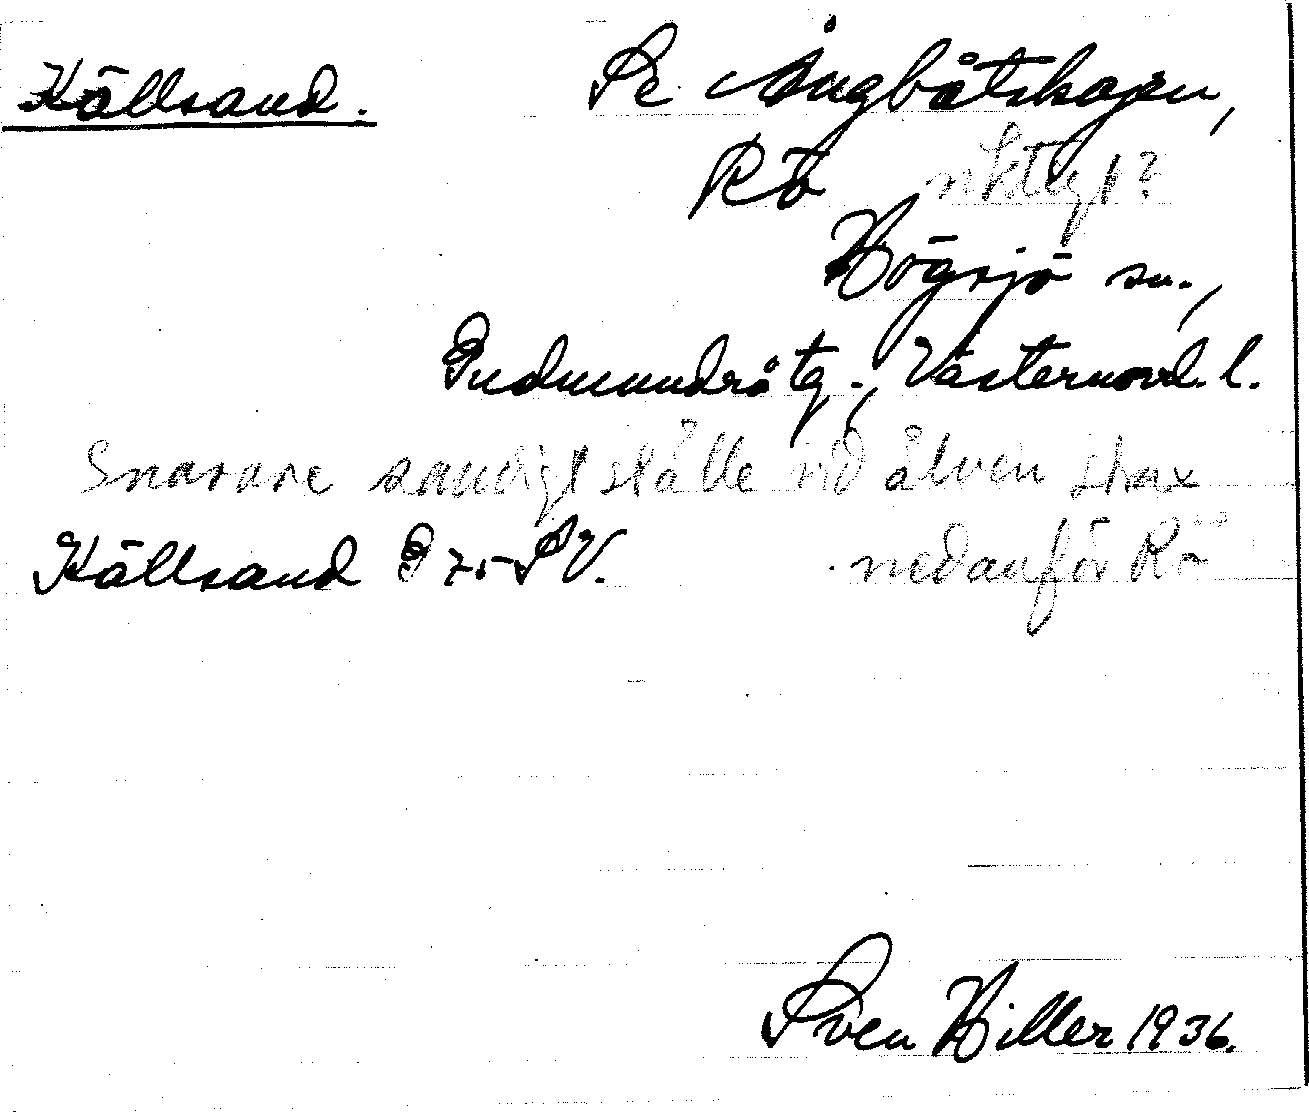 Källsand. Se Ångbåtskajen,
Rö riktigt?
Högsjö sn.,
Gudmundrå tg., Västernorrl. l.
Snarare sandigt ställe vid älven strax
Källsand G 75 SV. nedanför Rö
Sven Hiller 1936.